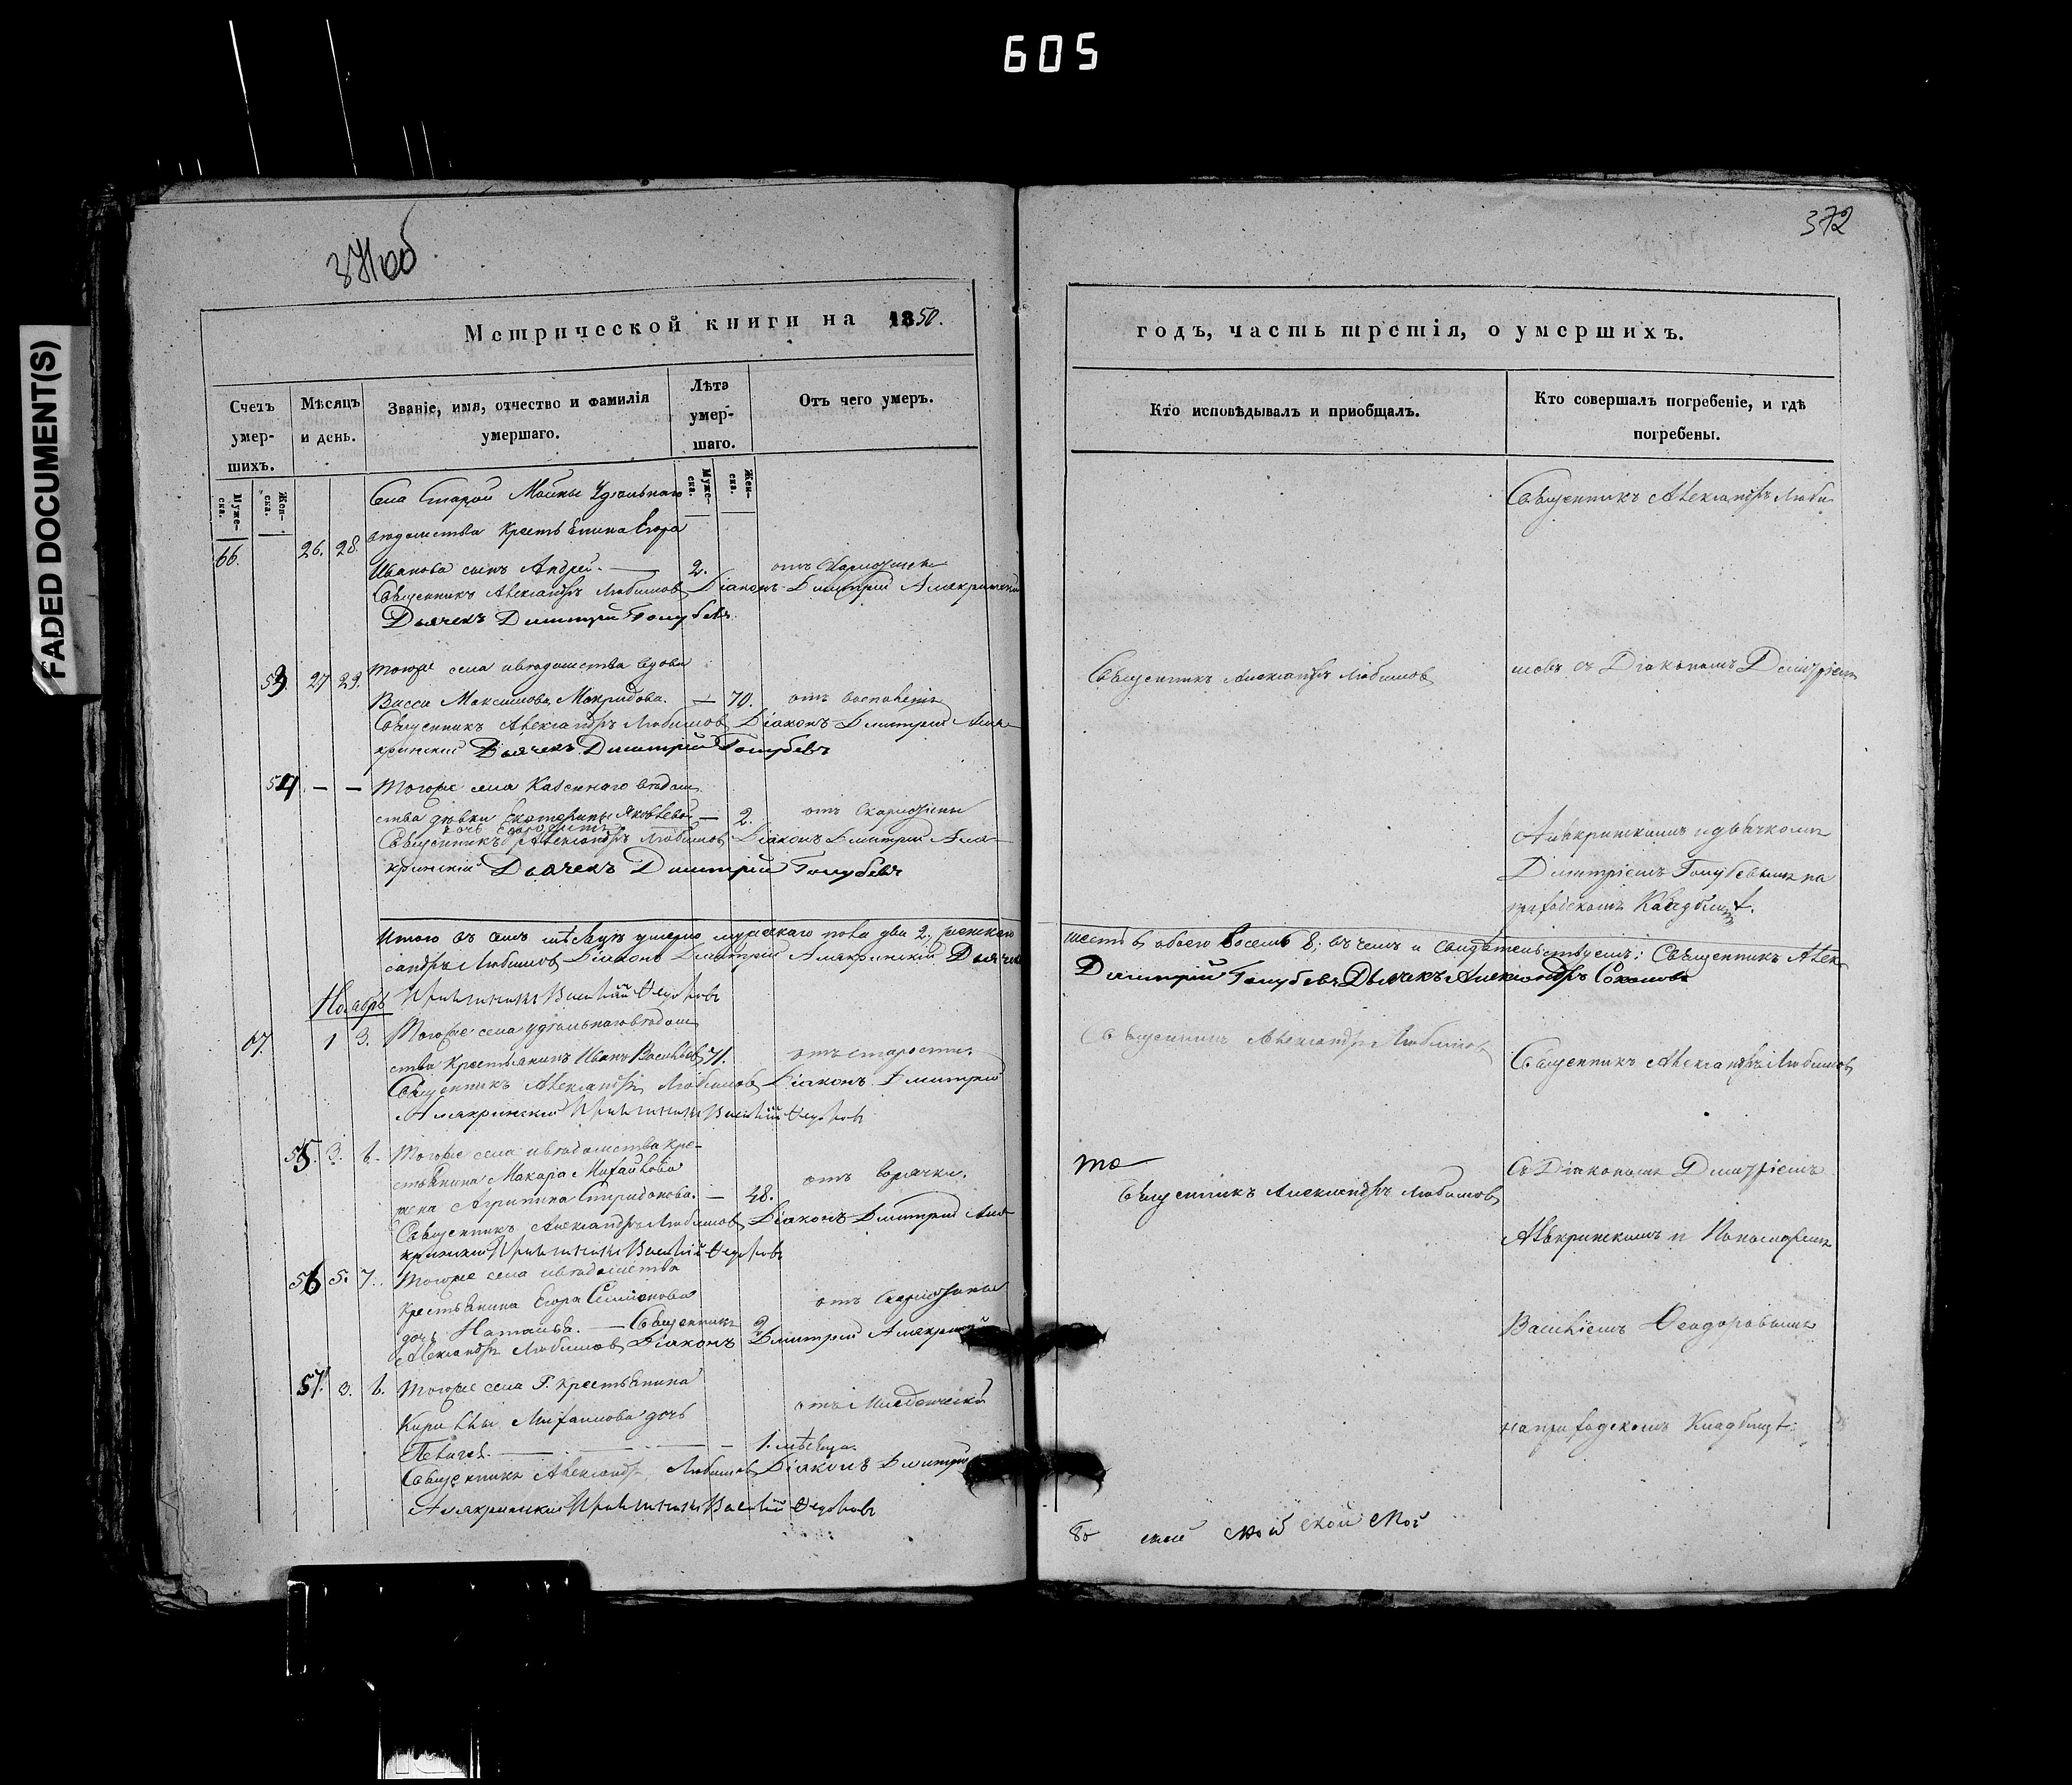 605
FADED DOCUMENT(S)
371об
372
Метрической книги на 1850.
годъ, часть третія, о умершихъ.
Счетъ умер-шихъ.
Мѣсяцъ и день.
Званіе, имя, отчество и фамилія умершаго.
Лѣта умер-шаго.
Отъ чего умеръ.
Кто исповѣдывалъ и приобщалъ.
Кто совершалъ погребеніе, и гдѣ погребены.
Муже-ска.
Жен-ска.
Муже-ска.
Жен-ска.
Села Старой Майны Удѣльнаго
вѣдомства крестьянина Егора
66. 26. 28.
Иванова сынъ Андрей. — 2. отъ
Священникъ Александръ Любимовъ Діаконъ Димитрій Алякринскій
Дьячекъ Димитрій Голубевъ
Священникъ Александръ Люби-
53. 27 29. Тогоже села и вѣдомства вдова
Васса Максимова — 70. отъ
Священникъ Александръ Любимовъ Діаконъ Димитрій Аля-
кринскій Дьячекъ Димитрій Голубевъ
Священникъ Александръ Любимовъ
мовъ съ Діакономъ Димитріемъ
54. — — Тогоже села Казеннаго вѣдом-
ства дѣвки Екатерины Яковлевой — 2. отъ
дочь
Священникъ Александръ Любимовъ Діаконъ Димитрій Аля-
кринскій Дьячекъ Димитрій Голубевъ
Алякринскимъ и дьячкомъ
Димитріемъ Голубевымъ на
приходскомъ кладбищѣ.
Итого въ семъ мѣсяцѣ умерло мужскаго пола два 2; женскаго
шесть 6, обоего восемь 8; въ чемъ и свидѣтельствуемъ: Священникъ Алек-
сандръ Любимовъ Діаконъ Димитрій Алякринскій Дьячекъ
Димитрій Голубевъ Дьячекъ Александръ Соколовъ
Василій Ѳедоровъ
Ноябрь
67. 1 3. Тогоже села удѣльнаго вѣдом-
ства крестьянинъ Иванъ Васильевъ 71. отъ старости.
Священникъ Александръ Любимовъ Діаконъ Димитрій
Алякринскій Василій Ѳедоровъ
Священникъ Александръ Любимовъ
Священникъ Александръ Любимовъ
55. 3. 6. Тогоже села и вѣдомства кре-
стьянина Макара Михайлова
жена Агрипина Спиридонова. — 48. отъ горячки.
Священникъ Александръ Любимовъ Діаконъ Димитрій Аля-
кринскій Василій Ѳедоровъ
то
Священникъ Александръ Любимовъ
съ Діакономъ Димитріемъ
Алякринскимъ и Пономаремъ
56 5. 7. Тогоже села и вѣдомства
крестьянина Егора Симіонова
дочь Наталья. — Священникъ 2 отъ
Александръ Любимовъ Діаконъ Димитрій Алякринскій
Василіемъ Ѳеодоровымъ
57. 3. 6. Тогоже села Г. крестьянина
Кирилы Михайлова дочь
Пелагея. — 1. мѣсяца.
Священникъ Александръ Любимовъ Діаконъ Димитрій
Алякринскій Василій Ѳедоровъ
на приходскомъ кладбищѣ.
ской ской